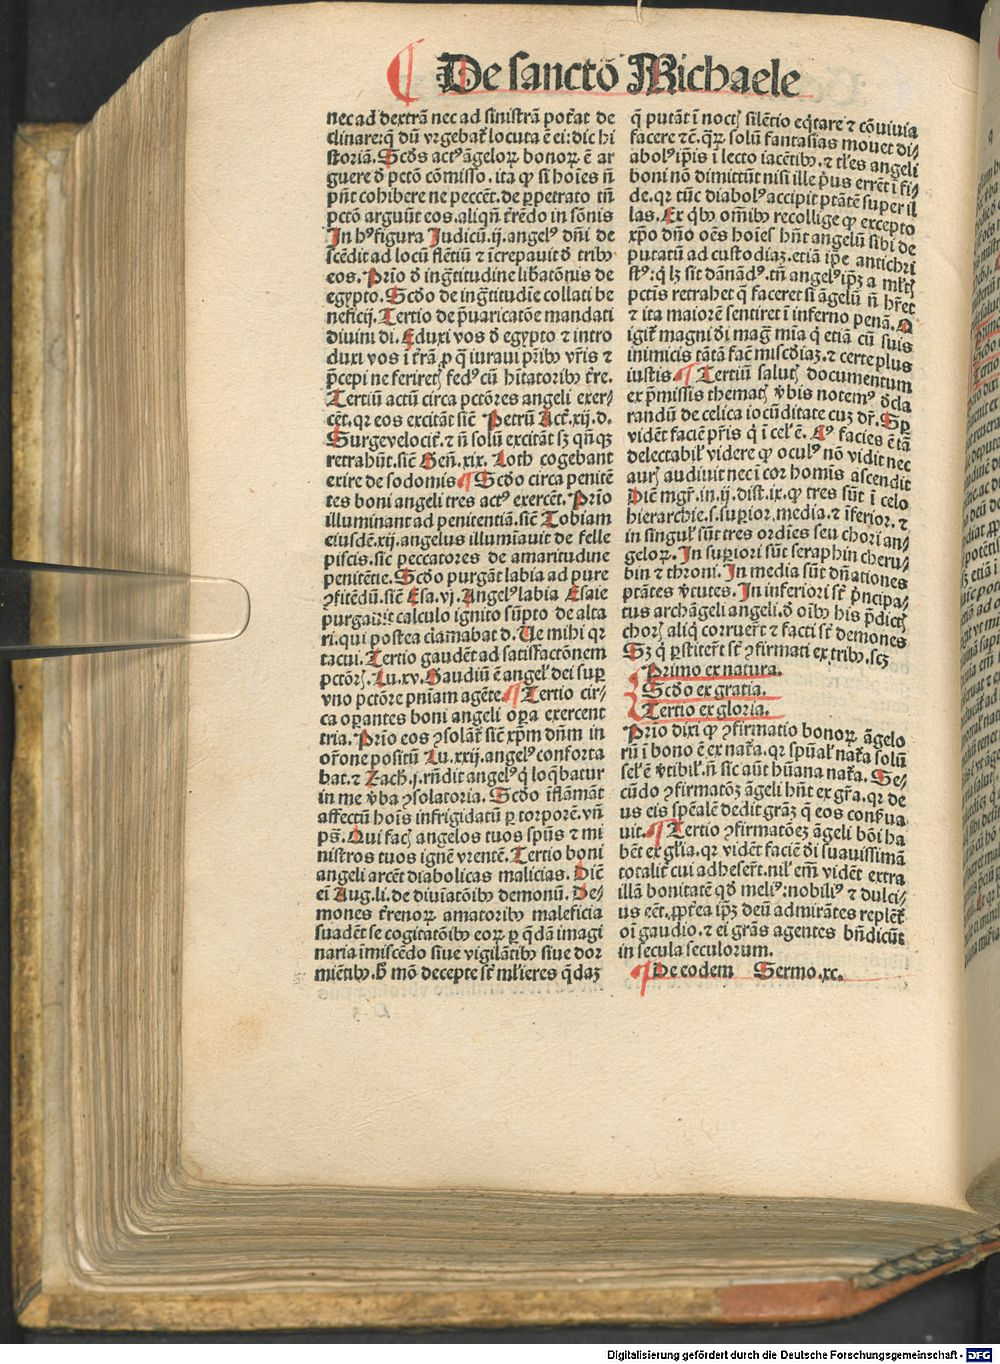 De sancto Michaele
nec ad dextrā nec ad sinistrā poťat de
clinare: q̄ dū vrgebať locuta ē ei: dic hi
storiā. Scđs actꝰ āgeloꝝ bonoꝝ ē ar
guere ð pctō cōmisso. ita ꝙ si hoīes n̄
pn̄t cohibere ne peccēt. de ꝑpetrato tn̄
pctō arguūt eos. aliqn̄ ťrēdo in sōnis
In hꝰ figura Judicū .ij. angelꝰ dn̄i de
scēdit ad locū flētiū ⁊ īcrepauit ð tribꝰ
eos. Prio ð ingťitudine liƀatōnis de
egypto. Scđo de ingťitudīe collati be
neficij. Tertio de p̄uaricatōe mandati
diuini di. Eduxi vos ð egypto ⁊ intro
duxi vos ī ťrā ꝓ q̄ iuraui pribꝰ vr̄is ⁊
p̄cepi ne feriretꝭ fedꝰ cū hītatoribꝰ ťre.
Tertiū actū circa pctōres angeli exer-
cēt. qꝛ eos excitāt sič Petrū Act. xij. d.
Surge velociť. ⁊ n̄ solū excitāt sꝫ qn̄qꝫ
retrahūt. sič Gen̄. xix. Loth cogebant
exire de sodomis ¶ Scđo circa penitē
tes boni angeli tres actꝰ exercēt. Prio
illuminant ad penitentiā. sič Tobiam
eiusdē. xij. angelus illumiauit de felle
piscis. sic peccatores de amaritudine
penitētie. Scđo purgāt labia ad pure
ꝯfitēdū. sič Esa. vj. Angelꝰ labia Esaie
purgauit calculo ignito sūpto de alta
ri. qui postea clamabat d. Ue mihi qꝛ
tacui. Tertio gaudēt ad satisfactōnem
pctōrꝭ. Lu. xv. Gaudiū ē angeľ dei suꝑ
vno pctōre pniam agēte. ¶ Tertio cir-
ca oꝑantes boni angeli oꝑa exercent
tria. Prio eos ꝯsolāť sič xp̄m dn̄m in
or̄one positū Lu. xxij. angelꝰ conforta
bat. ⁊ Zach̄. j. rn̄dit angelꝰ q̄ loq̄batur
in me ṽba ꝯsolatoria. Scđo īflāmāt
affectū hoīs infrigidatū ꝑ torporē. vn̄
ps̄. Qui facꝭ angelos tuos spūs ⁊ mi
nistros tuos ignē vrentē. Tertio boni
angeli arcēt diabolicas malicias. Dič
eī Aug. li. de diuīatōibꝰ demonū. De-
mones ťrenoꝝ amatoribꝰ maleficia
suadēt se cogitatōibꝰ eoꝝ ꝑ q̄dā imagi
naria īmiscēdo siue vigilātibꝰ siue dor
miētibꝰ. h̄ mō decepte sť mľieres q̄daꝫ
q̄ putāt ī noctꝭ silētio eq̄tare ⁊ cōuiuia
facere ⁊č. qꝛ solū fantasias mouet di-
abolꝰ ip̄is ī lecto iacētibꝰ. ⁊ tľes angeli
boni nō dimittūt nisi ille pꝰus errēt ī fi-
de. qꝛ tūc diabolꝰ accipit ptātē super il
las. Ex qbꝰ om̄ibꝰ recollige ꝙ excepto
xp̄o dn̄o oēs hoīes hn̄t angelū sibi de
putatū ad custodiaꝫ. etiā ip̄e antichri
stꝰ: q̄ lꝫ sit dānādꝰ. tn̄ angelꝰ ip̄ꝫ a mľtꝭ
pctis retrahet q̄ faceret si āgelū n̄ hr̄et
⁊ ita maiorē sentiret ī inferno penā. O
igiť magni ði mag̃ mīa q̄ etiā cū suis
inimicis tātā fač misc̄diaꝫ. ⁊ certe plus
iustis. ¶ Tertiū salutꝭ documentum
ex p̄missis thematꝭ ṽbis notemꝰ ðcla
randū de celica iocūditate cuꝫ dr̄. Sꝑ
vidēt faciē pr̄is q̄ ī celꝰ ē. Cꝰ facies ē tā
delectabiľ videre ꝙ oculꝰ nō vidit nec
aurꝭ audiuit nec ī cor homīs ascendit
Dič mgr̄. in. ij. dist. ix. ꝙ tres sūt ī celo
hierarchie. s. suꝑior, media. ⁊ īferior. ⁊
in singuľ sūt tres ordīes seu chori an-
geloꝝ. In suꝑiori sūt seraphin cheru-
bin ⁊ throni. In media sūt dn̄ationes
ptātes ṽtutes. In inferiori sť p̄ncipa-
tus archāgeli angeli. ð oībꝰ his p̄dictꝭ
chorꝭ aliq̄ corruerť ⁊ facti sť demones
Sꝫ q̄ ꝑstiterť sť ꝯfirmati ex tribꝰ. scꝫ
Primo ex natura.
Scđo ex gratia.
Tertio ex gloria.
Prio dixi ꝙ ꝯfirmatio bonoꝝ āgelo
rū ī bono ē ex naťa. qꝛ spūaľ naťa solū
seľ ē ṽtibiľ. n̄ sic aūt hūana naťa. Se-
cūdo ꝯfirmatōꝫ āgeli hn̄t ex gr̄a. qꝛ de
us eis spēalē dedit grāꝫ q̄ eos conẜua
uit. ¶ Tertio ꝯfirmatōeꝫ āgeli bōi ha
bēt ex glīa. qꝛ vidēt faciē ði suauissimā
totaliť cui adheserť. nil em̄ vidēt extra
illā bonitatē qð meliꝰ: nobiliꝰ ⁊ dulci-
us eēt. ꝓpťea ip̄ꝫ deū admirātes replēť
oī gaudio. ⁊ ei grās agentes bn̄dicūt
in secula seculorum.
¶ De eodem Sermo. xc.
Digitalisierung gefördert durch die Deutsche Forschungsgemeinschaft - DFG